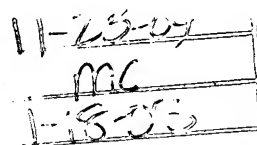 11-23-04
MC
1-18-05